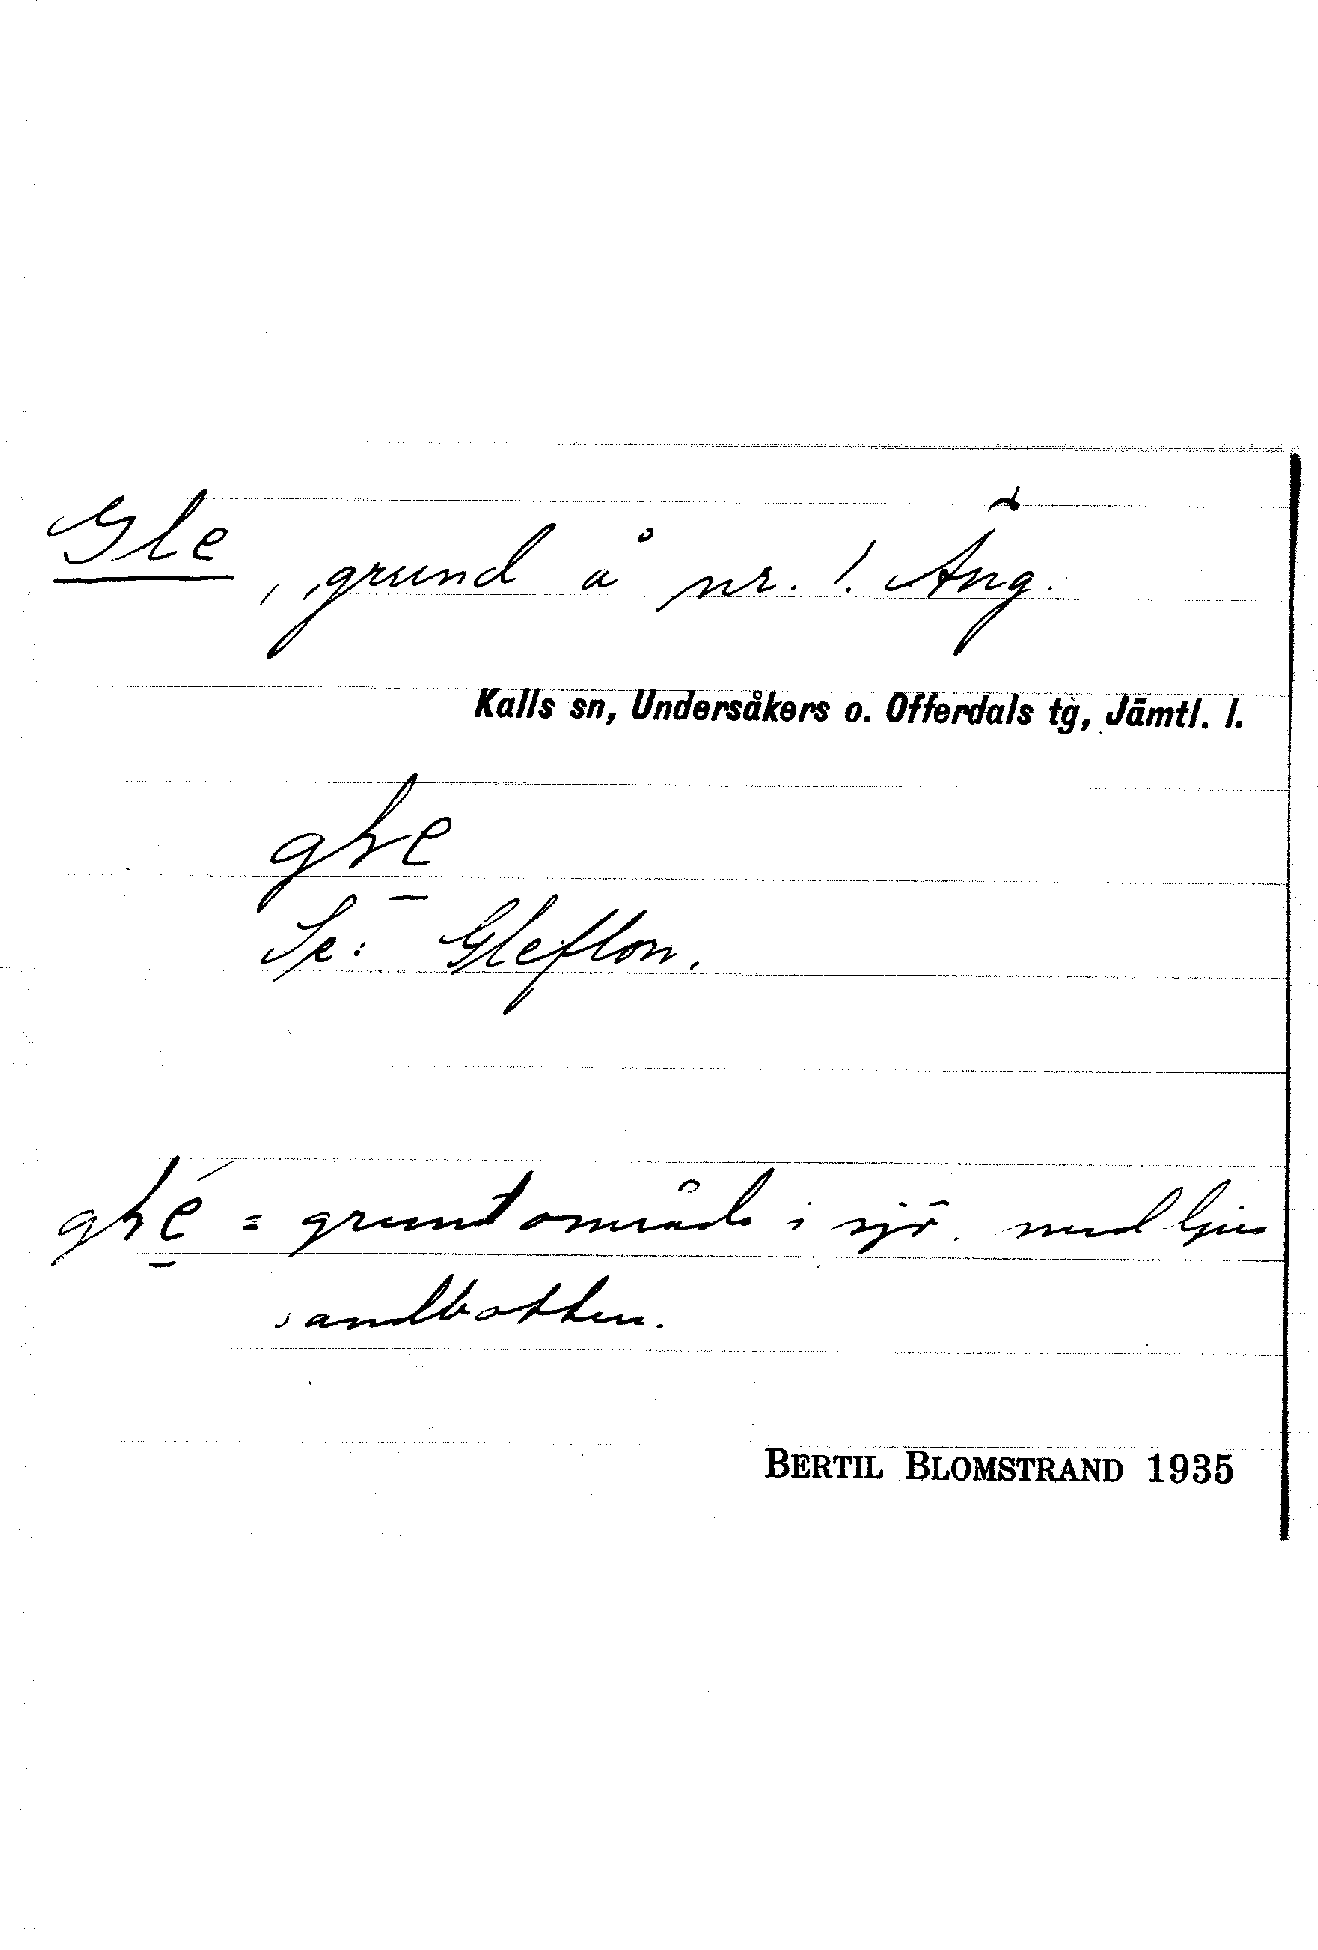 Gle, grund å nr. 1. Äng.
Kalls sn, Undersåkers o. Offerdals tg, Jämtl. l.
Se: Gleflon.
= grunt område i sjö med ljus
sandbotten.
BERTIL BLOMSTRAND 1935